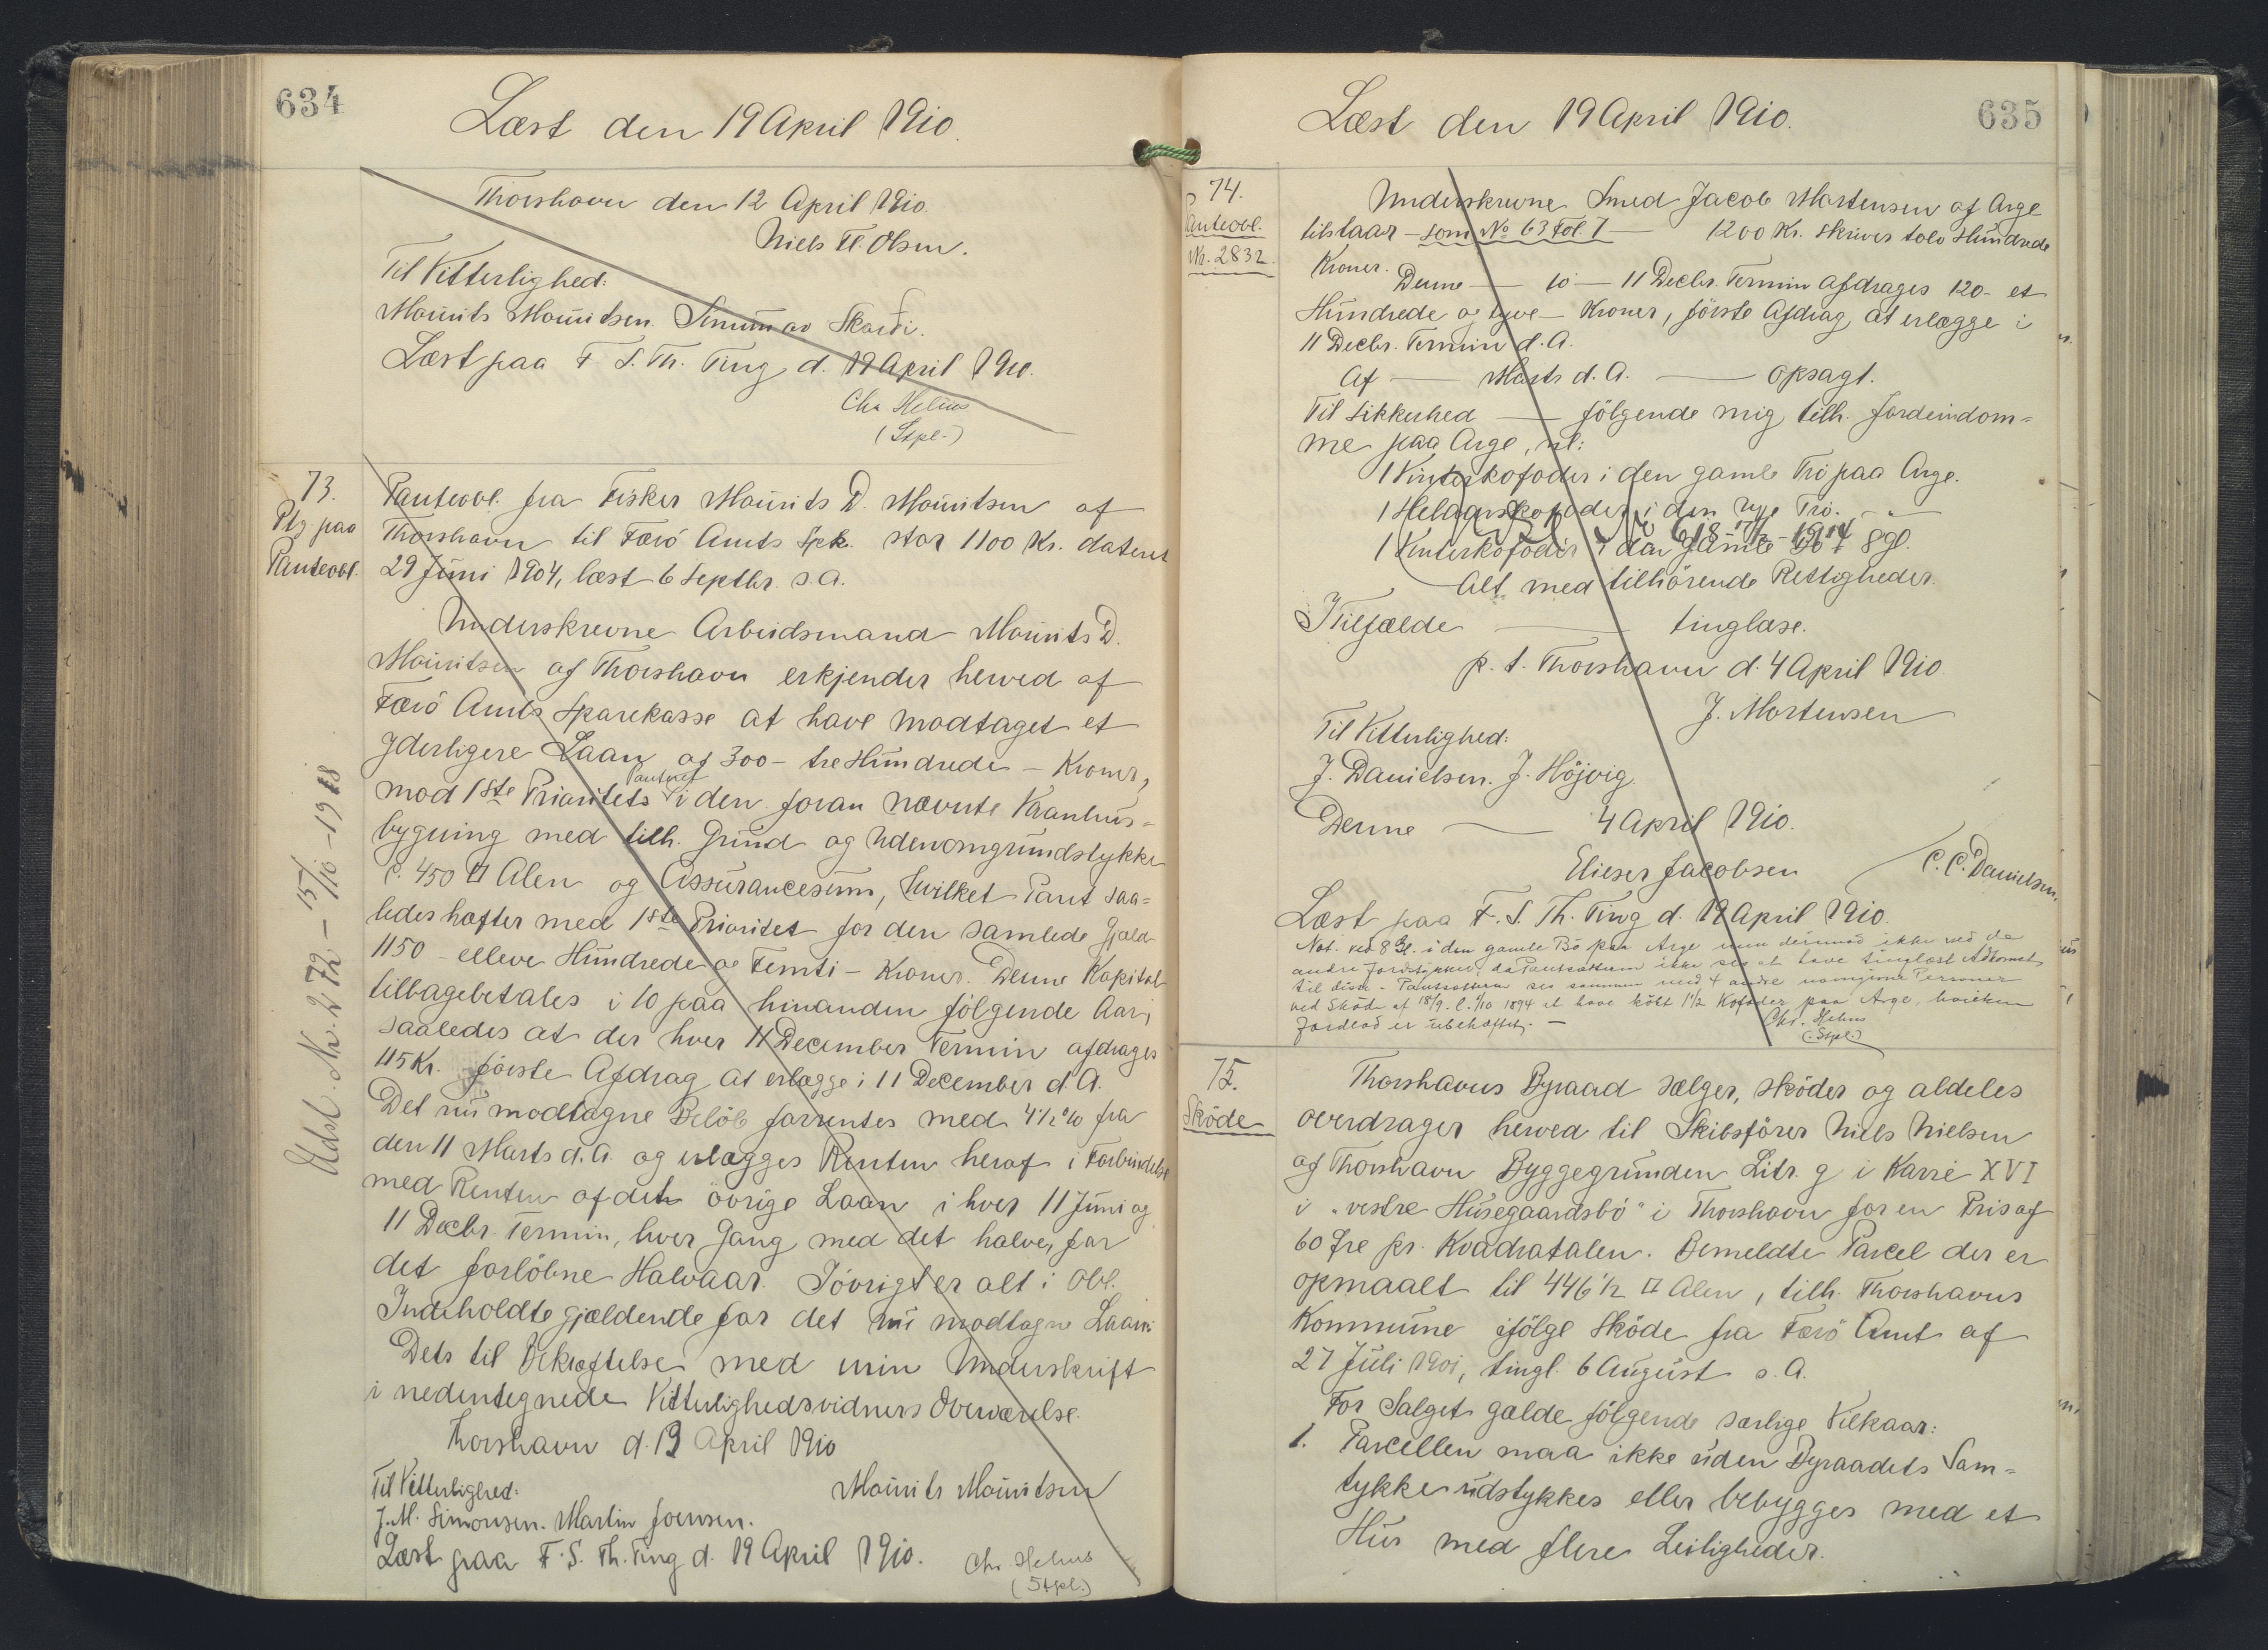 634
Læst den 19 April 1910.
Thorshavn den 12 April 1910.
Niels Fl. Olsen.
Til Vitterlighed:
Mourits Mouritsen. Simun av Skarði.
Læst paa F. S. Th. Ting d. 19 April 1910.
Chr Helms
(Stpl.)
73.
Ptg. paa
Panteobl.
Panteobl. fra Fisker Mourits D. Mouritsen af
Thorshavn til Færö Amts Spk. stor 1100 Kr. dateret
29 Juni 1904, læst 6 Septbr. s.A.
Underskrevne Arbeidsmand Mourits D.
Mouritsen af Thorshavn erkjender herved af
Færö Amts Sparekasse at have modtaget et
yderligere Laan af 300 – tre Hundrede – Kroner,
mod 1ste Prioritets Panteret i den foran nævnte Vaanhus-
bygning med tilh. Grund og Udenomgrundstykke
c. 450 □ Alen og Assurancesum, hvilket Pant saa-
ledes hæfter med 1ste Prioritet for den samlede Gjæld
1150 – elleve Hundrede og Femti – Kroner. Denne Kapital
tilbagebetales i 10 paa hinanden følgende Aar,
saaledes at der hver 11 December Termin afdrages
115 Kr. förste Afdrag at erlægge i 11 December d.A.
Det nu modtagne Belöb forrentes med 4½ % fra
den 11 Marts d.A. og erlægges Renten heraf i Forbindelse
med Renten af det övrige Laan i hver 11 Juni og
11 Decbr. Termin, hver Gang med det halve, for
det forlöbne Halvaar. Iövrigt er alt i Obl.
Indeholdte gjældende for det nu modtagne Laan.
Dets til Bekræftelse med min Underskrift
i nedentegnede Vitterlighedsvidners Overværelse.
Thorshavn d. 13 April 1910
Til Vitterlighed:
Mourits Mouritsen
J. M. Simonsen. Martin Joensen.
Læst paa F. S. Th. Ting d. 19 April 1910.
Chr. Helms
(Stpl.)
Udsl. Nr. 272 – 15/10 – 1918
635
Læst den 19 April 1910.
74.
Panteobl.
Nr. 2832.
Underskrevne Smed Jacob Mortensen af Arge
tilstaar – som No 63 Fol. 7 – 1200 Kr. skriver tolv Hundrede
Kroner.
Denne — 10 — 11 Decbr. Termin afdrages 120 – et
Hundrede og tyve – Kroner, förste Afdrag at erlægge i
11 Decbr. Termin d.A.
Af — Marts d.A. — opsagt.
Til Sikkerhed — fölgende mig tilh. Jordeindom-
me paa Arge, nl:
1 Vinterkofoder i den gamle Trö paa Arge.
1 Helaarskofoder i den nye Trö. – " –
Udsl. No 618 17/2 – 1914
1 Vinterkofoder i den gamle Bö + 8 gl.
Alt med tilhörende Rettigheder.
I Tilfælde — tinglæse.
p. t. Thorshavn d. 4 April 1910
J. Mortensen
Til Vitterlighed:
J. Danielsen. J. Höjvig.
Denne — 4 April 1910.
Elieser Jacobsen
C. C. Danielsen.
Læst paa F. S. Th. Ting d. 19 April 1910.
Not. ved 8 Gl. i den gamle Bö paa Arge men derimod ikke ved de
andre Jordstykker, da Pantsætteren ikke ses at have tinglæst Adkomst
til disse. – Pantsætteren ses sammen med 4 andre Personer
ved Sköde af 18/9. l. 1/10 1894 at have köbt 1½ Kofoder paa Arge, hvilken
Jordlod er ubehæftet. –
Chr. Helms
(Stpl.)
75.
Sköde
Thorshavns Byraad sælger, sköder og aldeles
overdrager herved til Skibsförer Niels Nielsen
af Thorshavn Byggegrunden Litr. g i Karré XVI
i "vestre Husegaardsbö" i Thorshavn for en Pris af
60 Øre pr. Kvadratalen. Bemeldte Parcel der er
opmaalt til 446½ □ Alen, tilh. Thorshavns
Kommune ifölge Sköde fra Færö Amt af
27 Juli 1901, tingl. 6 August s.A.
For Salget gælde fölgende særlige Vilkaar:
1. Parcellen maa ikke uden Byraadets Sam-
tykke udstykkes eller bebygges med et
Hus med flere Leiligheder.